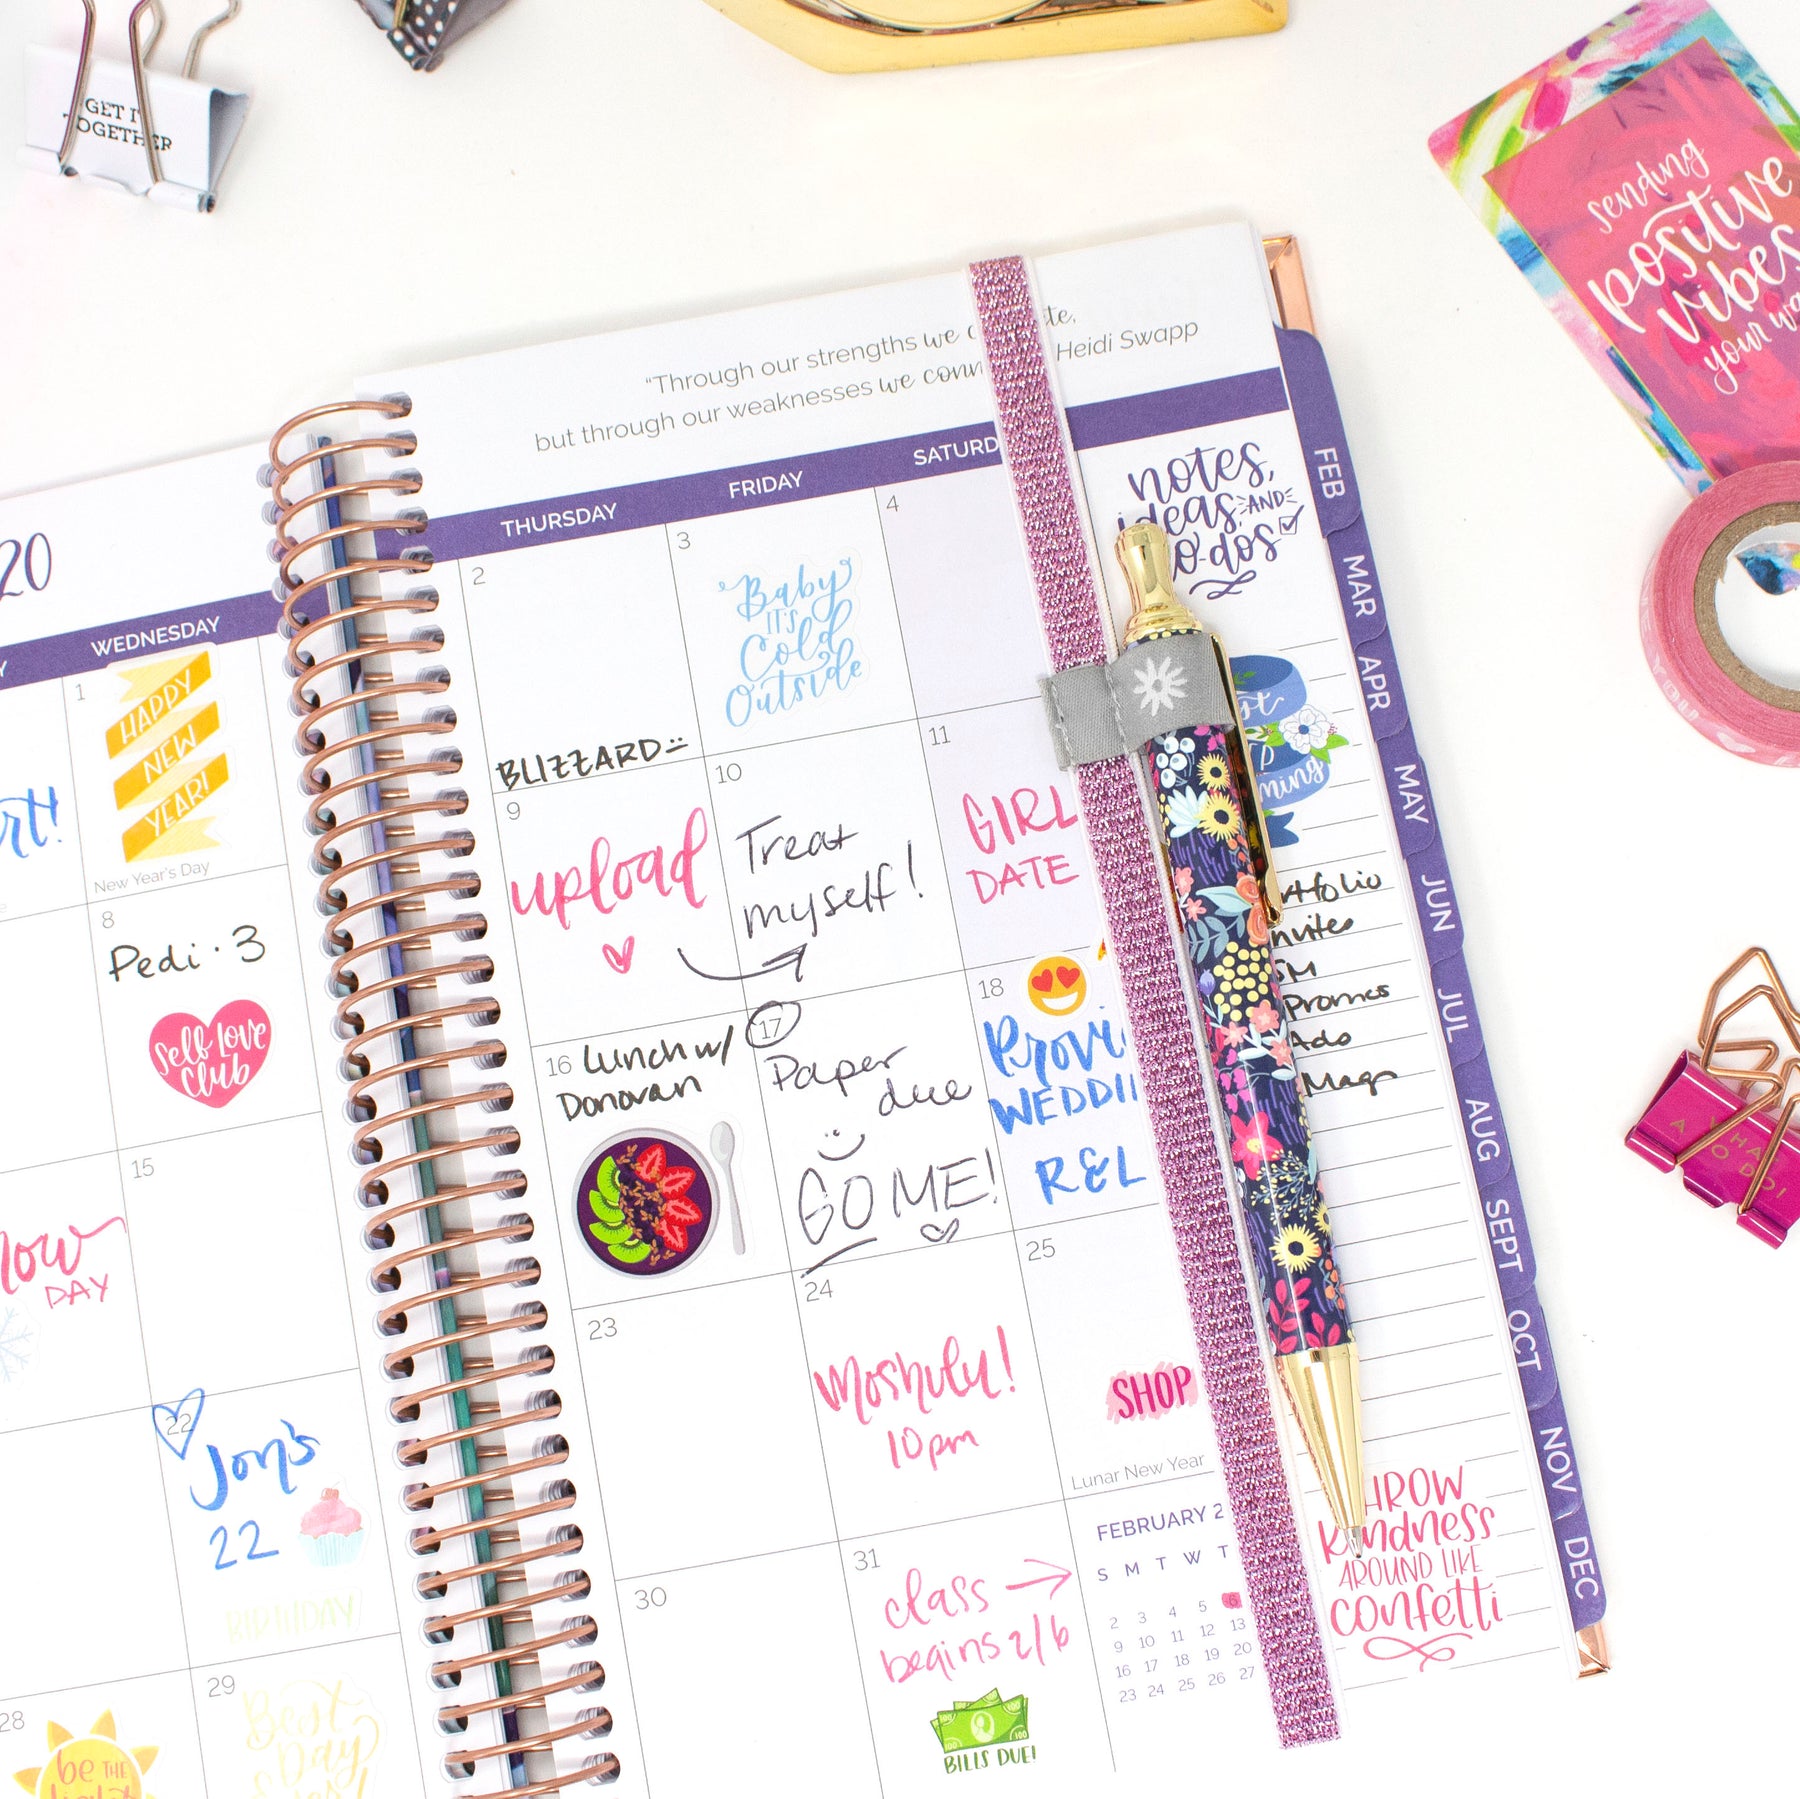 GET IT
TOGETHER
sending
positive
vibes
your
"Through our strengths we
but through our weaknesses we
Heidi Swapp
20
WEDNESDAY
THURSDAY
FRIDAY
notes,
ideas, AND
to-dos
1
HAPPY
NEW
YEAR!
New Year's Day
2
BLIZZARD
3
Baby
IT'S
Cold
Outside
4
8
Pedi · 3
Self Love
Club
9
upload
10
Treat
myself!
11
GIRL
DATE
15
DAY
16 Lunch w/
Donovan
17
Paper
due
GO ME!
18
WEDDI
R&L
Promos
Ado
Mags
22
Jon's
22
BIRTHDAY
23
24
Moshulu!
10pm
25
SHOP
Lunar New Year
28
be THE
light
29
Best
Day
30
31
class
begins 2/6
BILLS DUE!
FEBRUARY 2
S M T W T
2 3 4 5 6
9 10 11 12 13
16 17 18 19 20
23 24 25 26 27
THROW
kindness
AROUND LIKE
confetti
FEB
MAR
APR
MAY
JUN
JUL
AUG
SEPT
OCT
NOV
DEC